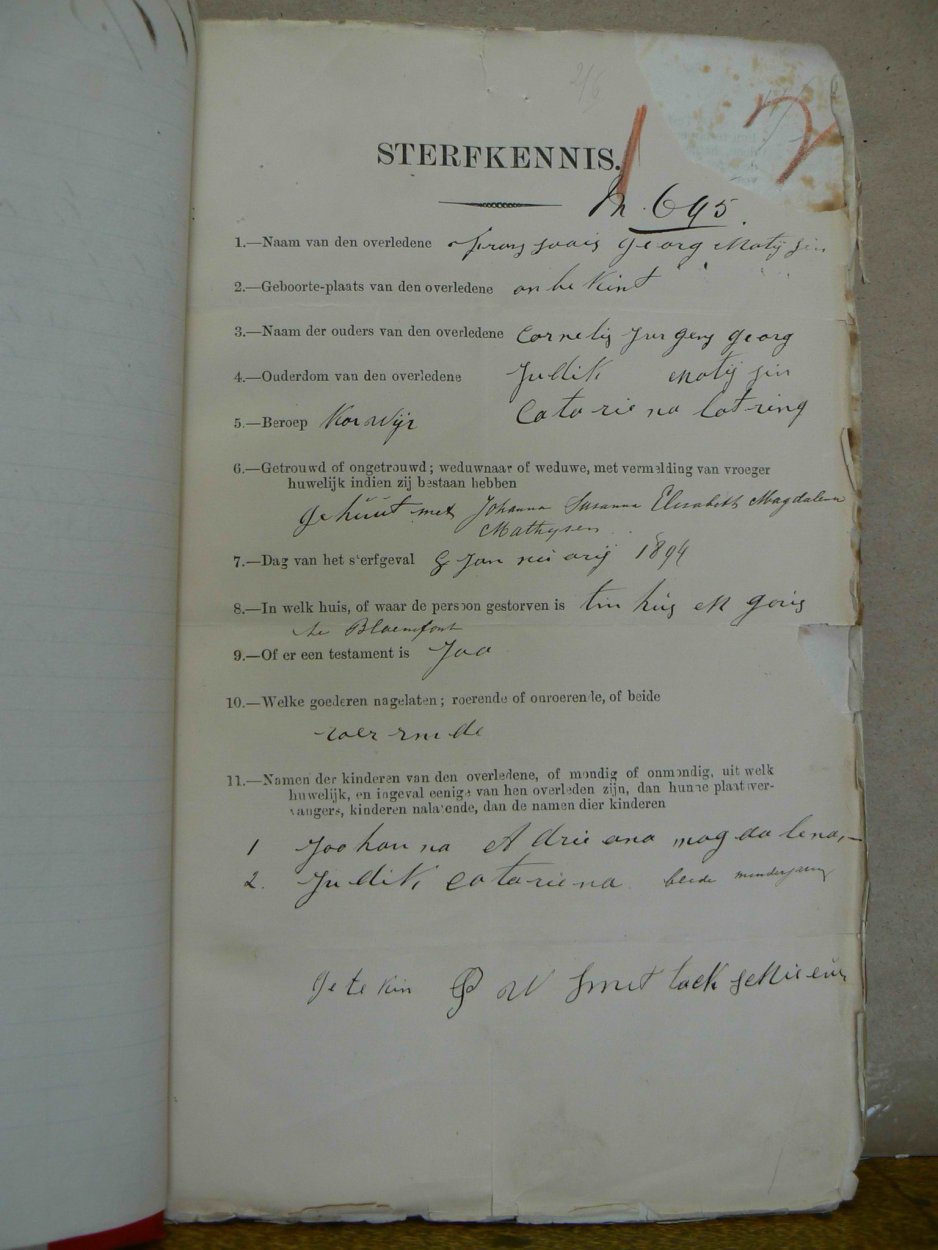 STERFKENNIS.
M. 695.
1.—Naam van den overledene Georg Matijsin
2.—Geboorte-plaats van den overledene onbekint
3.—Naam der ouders van den overledene Cornelis Jurgens Georg
4.—Ouderdom van den overledene Judik Matijsin
5.—Beroep Catariena Lotring
6.—Getrouwd of ongetrouwd; weduwnaar of weduwe, met vermelding van vroeger
huwelijk indien zij bestaan hebben
gehuut met Johanna Susanna Elisabeth Magdalena
Mathysen
7.—Dag van het sterfgeval 8 Januarij 1894
8.—In welk huis, of waar de persoon gestorven is
te Bloemfont
9.—Of er een testament is Jaa
10.—Welke goederen nagelaten; roerende of onroerende, of beide
roerende
11.—Namen der kinderen van den overledene, of mondig of onmondig, uit welk
huwelijk, en ingeval eenige van hen overleden zijn, dan hunne plaatsver-
vangers, kinderen nalatende, dan de namen dier kinderen
1 Joohanna Adrieana magdalena
2. Judik Catariena beide minderjaren
Getekin W Smit